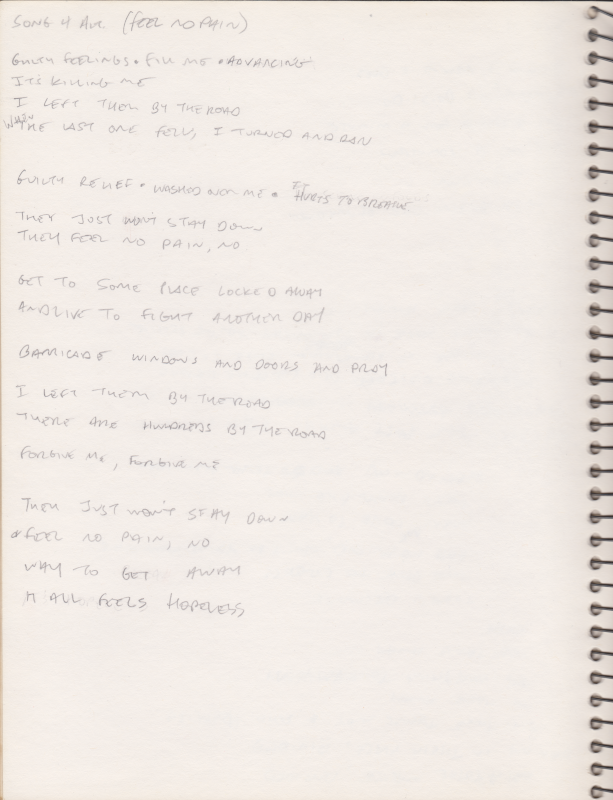 SONG 4 AVR (FEEL NO PAIN)
GUILTY FEELINGS • FILL ME • ADVANCING
IT'S KILLING ME
I LEFT THEM BY THE ROAD
WHEN THE LAST ONE FELL, I TURNED AND RAN
GUILTY RELIEF • WASHED OVER ME • IT HURTS TO BREATHE
THEY JUST WON'T STAY DOWN
THEY FEEL NO PAIN, NO
GET TO SOME PLACE LOCKED AWAY
AND LIVE TO FIGHT ANOTHER DAY
BARRICADE WINDOWS AND DOORS AND PRAY
I LEFT THEM BY THE ROAD
THERE ARE HUNDREDS BY THE ROAD
FORGIVE ME, FORGIVE ME
THEY JUST WON'T STAY DOWN
FEEL NO PAIN, NO
WAY TO GET AWAY
IT ALL FEELS HOPELESS